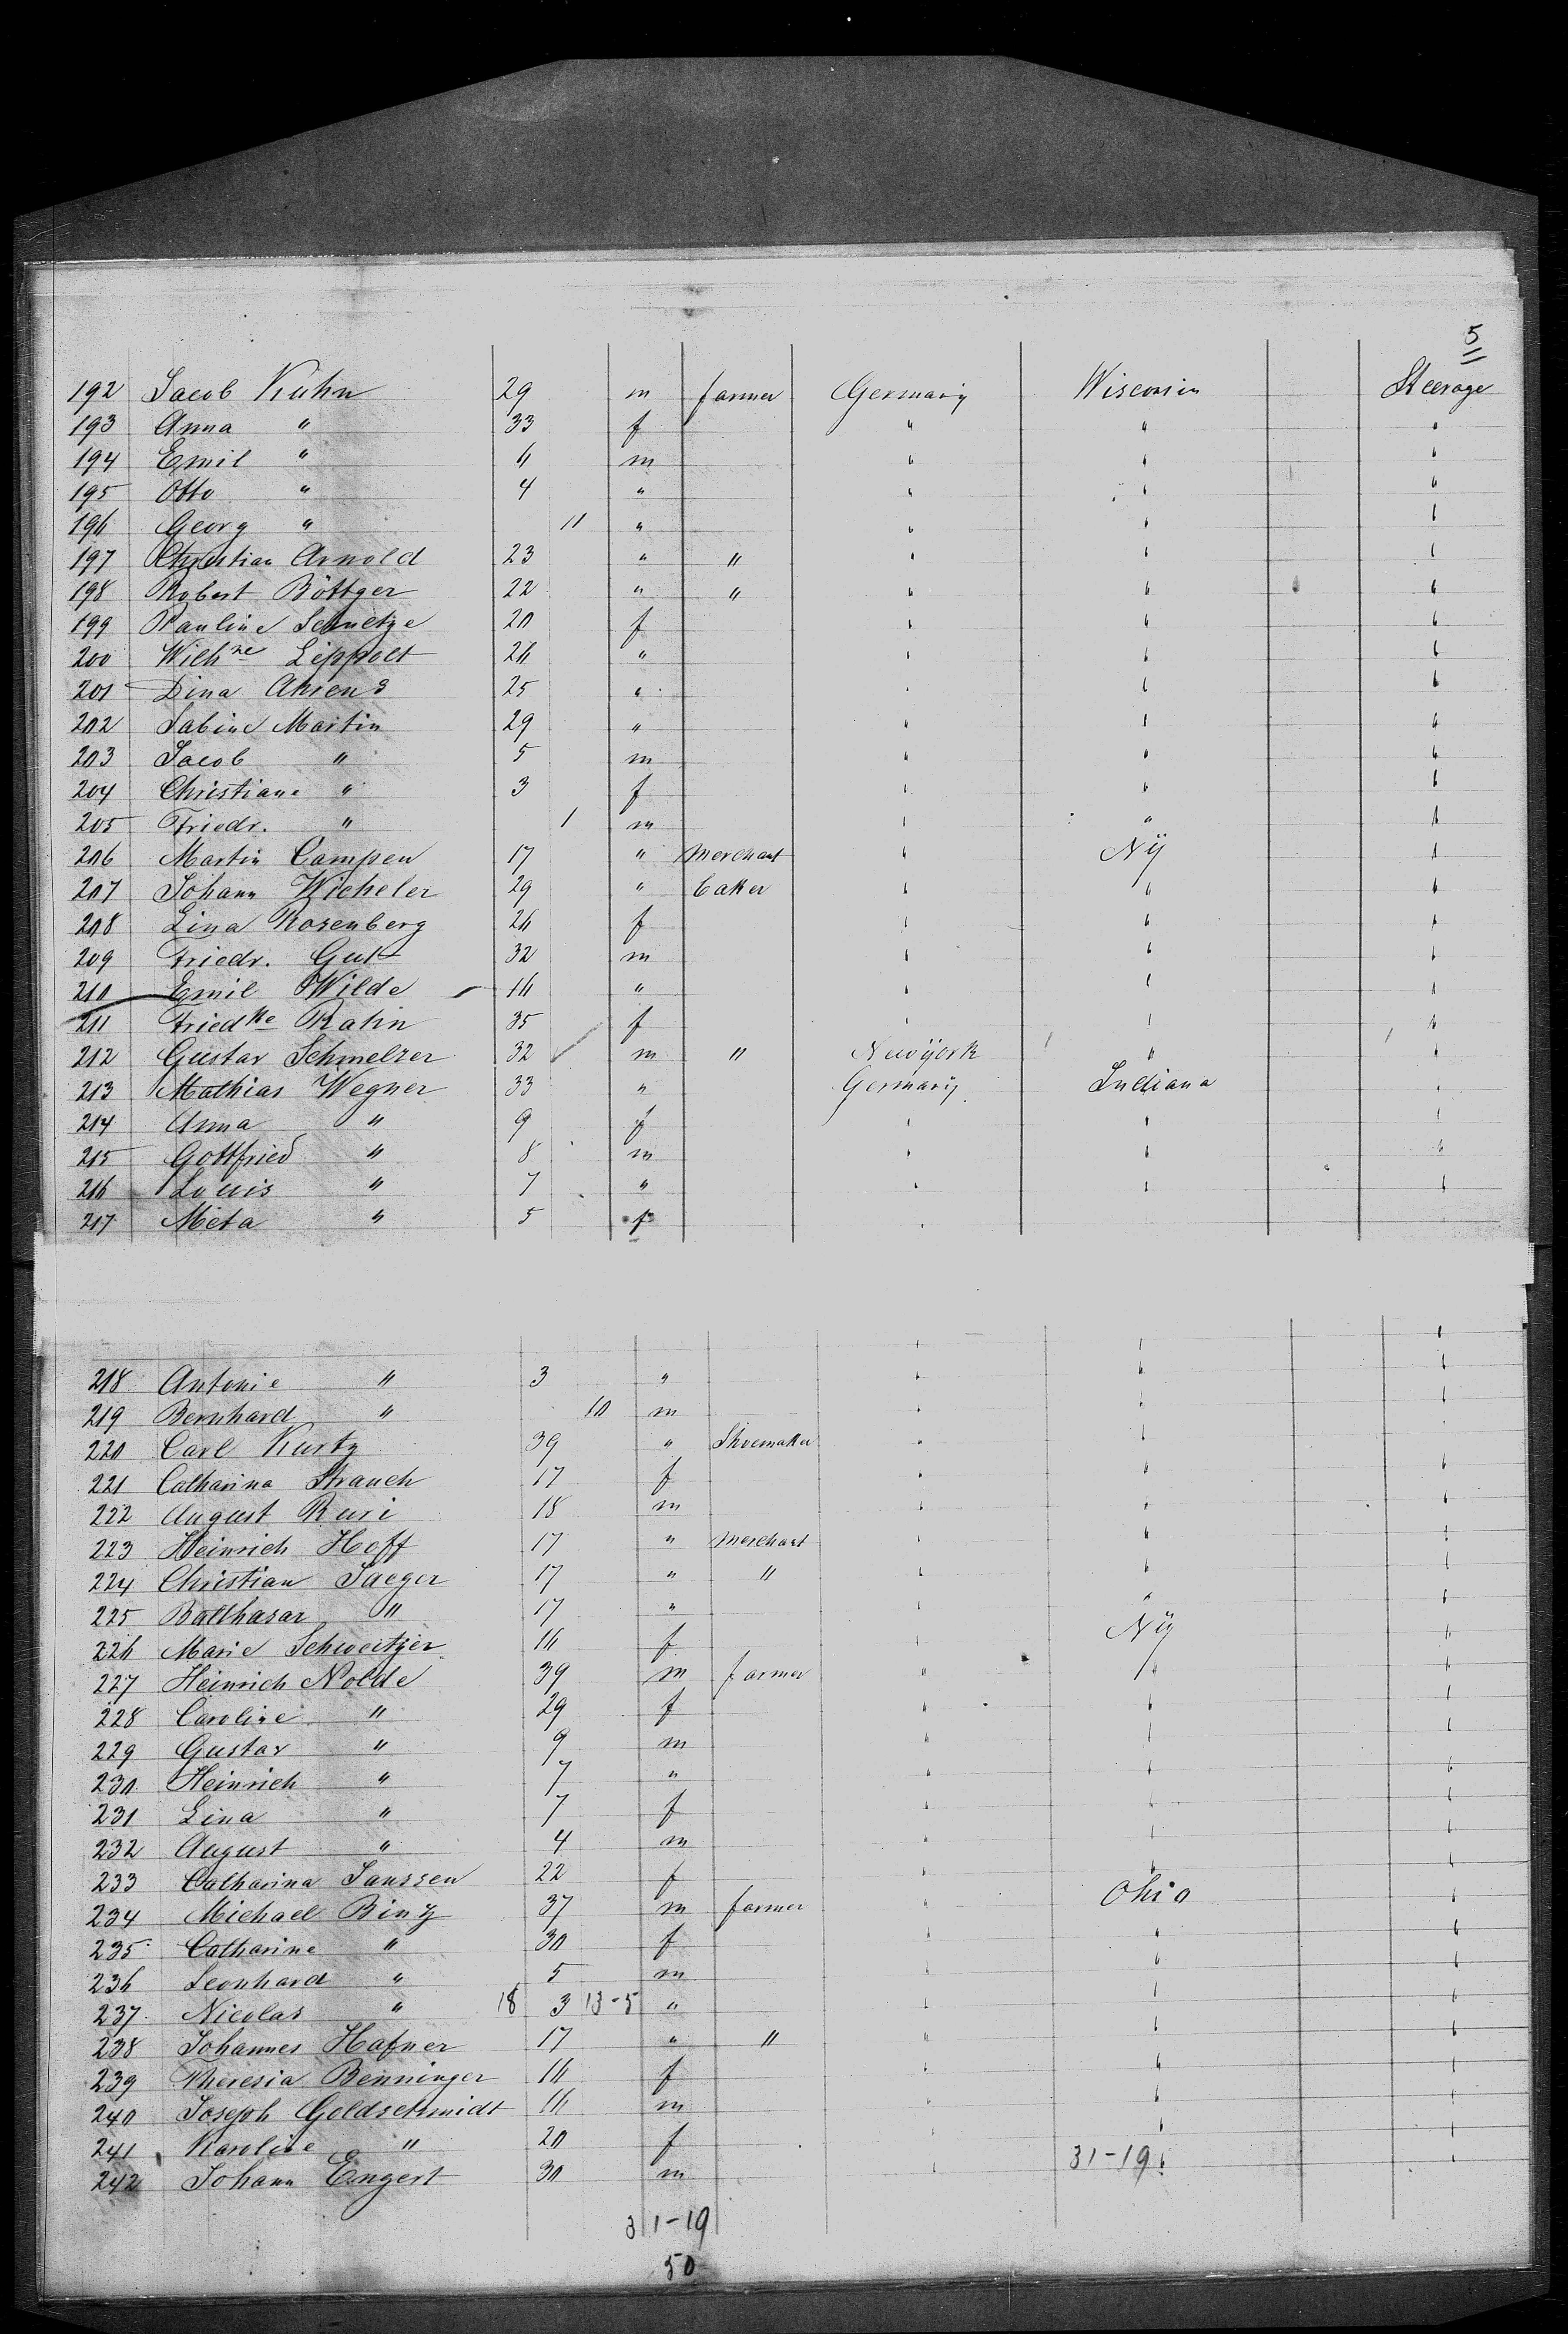 5
192 Jacob Kuhn 29 m farmer Germany Wisconsin Steerage
193 Anna " 33 f " " "
194 Emil " 6 m " " "
195 Otto " 4 " " " "
196 Georg " 11 " " " "
197 Christian Arnold 23 " " " " "
198 Robert Böttger 22 " " " " "
199 Pauline Schuetze 20 f " " "
200 Wilhne Lippolt 26 " " " "
201 Dina Ahrens 25 " " " "
202 Sabine Martin 29 " " " "
203 Jacob " 5 m " " "
204 Christiane " 3 f " " "
205 Friedr. " 1 m " " "
206 Martin Campen 17 " merchant " NY "
207 Johann Wicheler 29 " baker " " "
208 Lina Rosenberg 26 f " " "
209 Friedr. Gut 32 m " " "
210 Emil Wilde 16 " " " "
211 Friedke Rahn 35 f " " "
212 Gustav Schmelzer 32 m " Newyork " "
213 Mathias Wegner 33 " Germany Indiana "
214 Anna " 9 f " " "
215 Gottfried " 8 m " " "
216 Louis " 7 " " " "
217 Meta " 5 f " " "
218 Antonie " 3 " " " "
219 Bernhard " 10 m " " "
220 Carl Kurtz 39 " Shoemaker " " "
221 Catharina Strauch 17 f " " "
222 August Ruri 18 m " " "
223 Heinrich Hoff 17 " merchant " " "
224 Christian Jaeger 17 " " " " "
225 Balthasar " 17 " " " "
226 Marie Schweitzer 16 f " NY "
227 Heinrich Nolde 39 m farmer " " "
228 Caroline " 29 f " " "
229 Gustav " 9 m " " "
230 Heinrich " 7 " " " "
231 Lina " 7 f " " "
232 August " 4 m " " "
233 Catharina Janssen 22 f " " "
234 Michael Bing 37 m farmer " Ohio "
235 Catharine " 30 f " " "
236 Leonhard " 5 m " " "
237 Nicolas " 18 3 13-5 " " " "
238 Johannes Hafner 17 " " " " "
239 Theresia Benninger 16 f " " "
240 Joseph Goldschmidt 16 m " " "
241 Karoline " 20 f " " "
242 Johann Engert 30 m " 31-19 " "
31-19
50